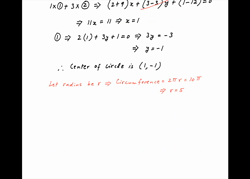 1×① + 3×② ⇒ (2+9)x + (3-3)y + (1-12)=0
⇒ 11x = 11 ⇒ x=1
① ⇒ 2(1) + 3y + 1 = 0 ⇒ 3y = -3
⇒ y = -1
∴ Center of circle is (1,-1)
Let radius be r ⇒ Circumference = 2πr = 10π
⇒ r = 5